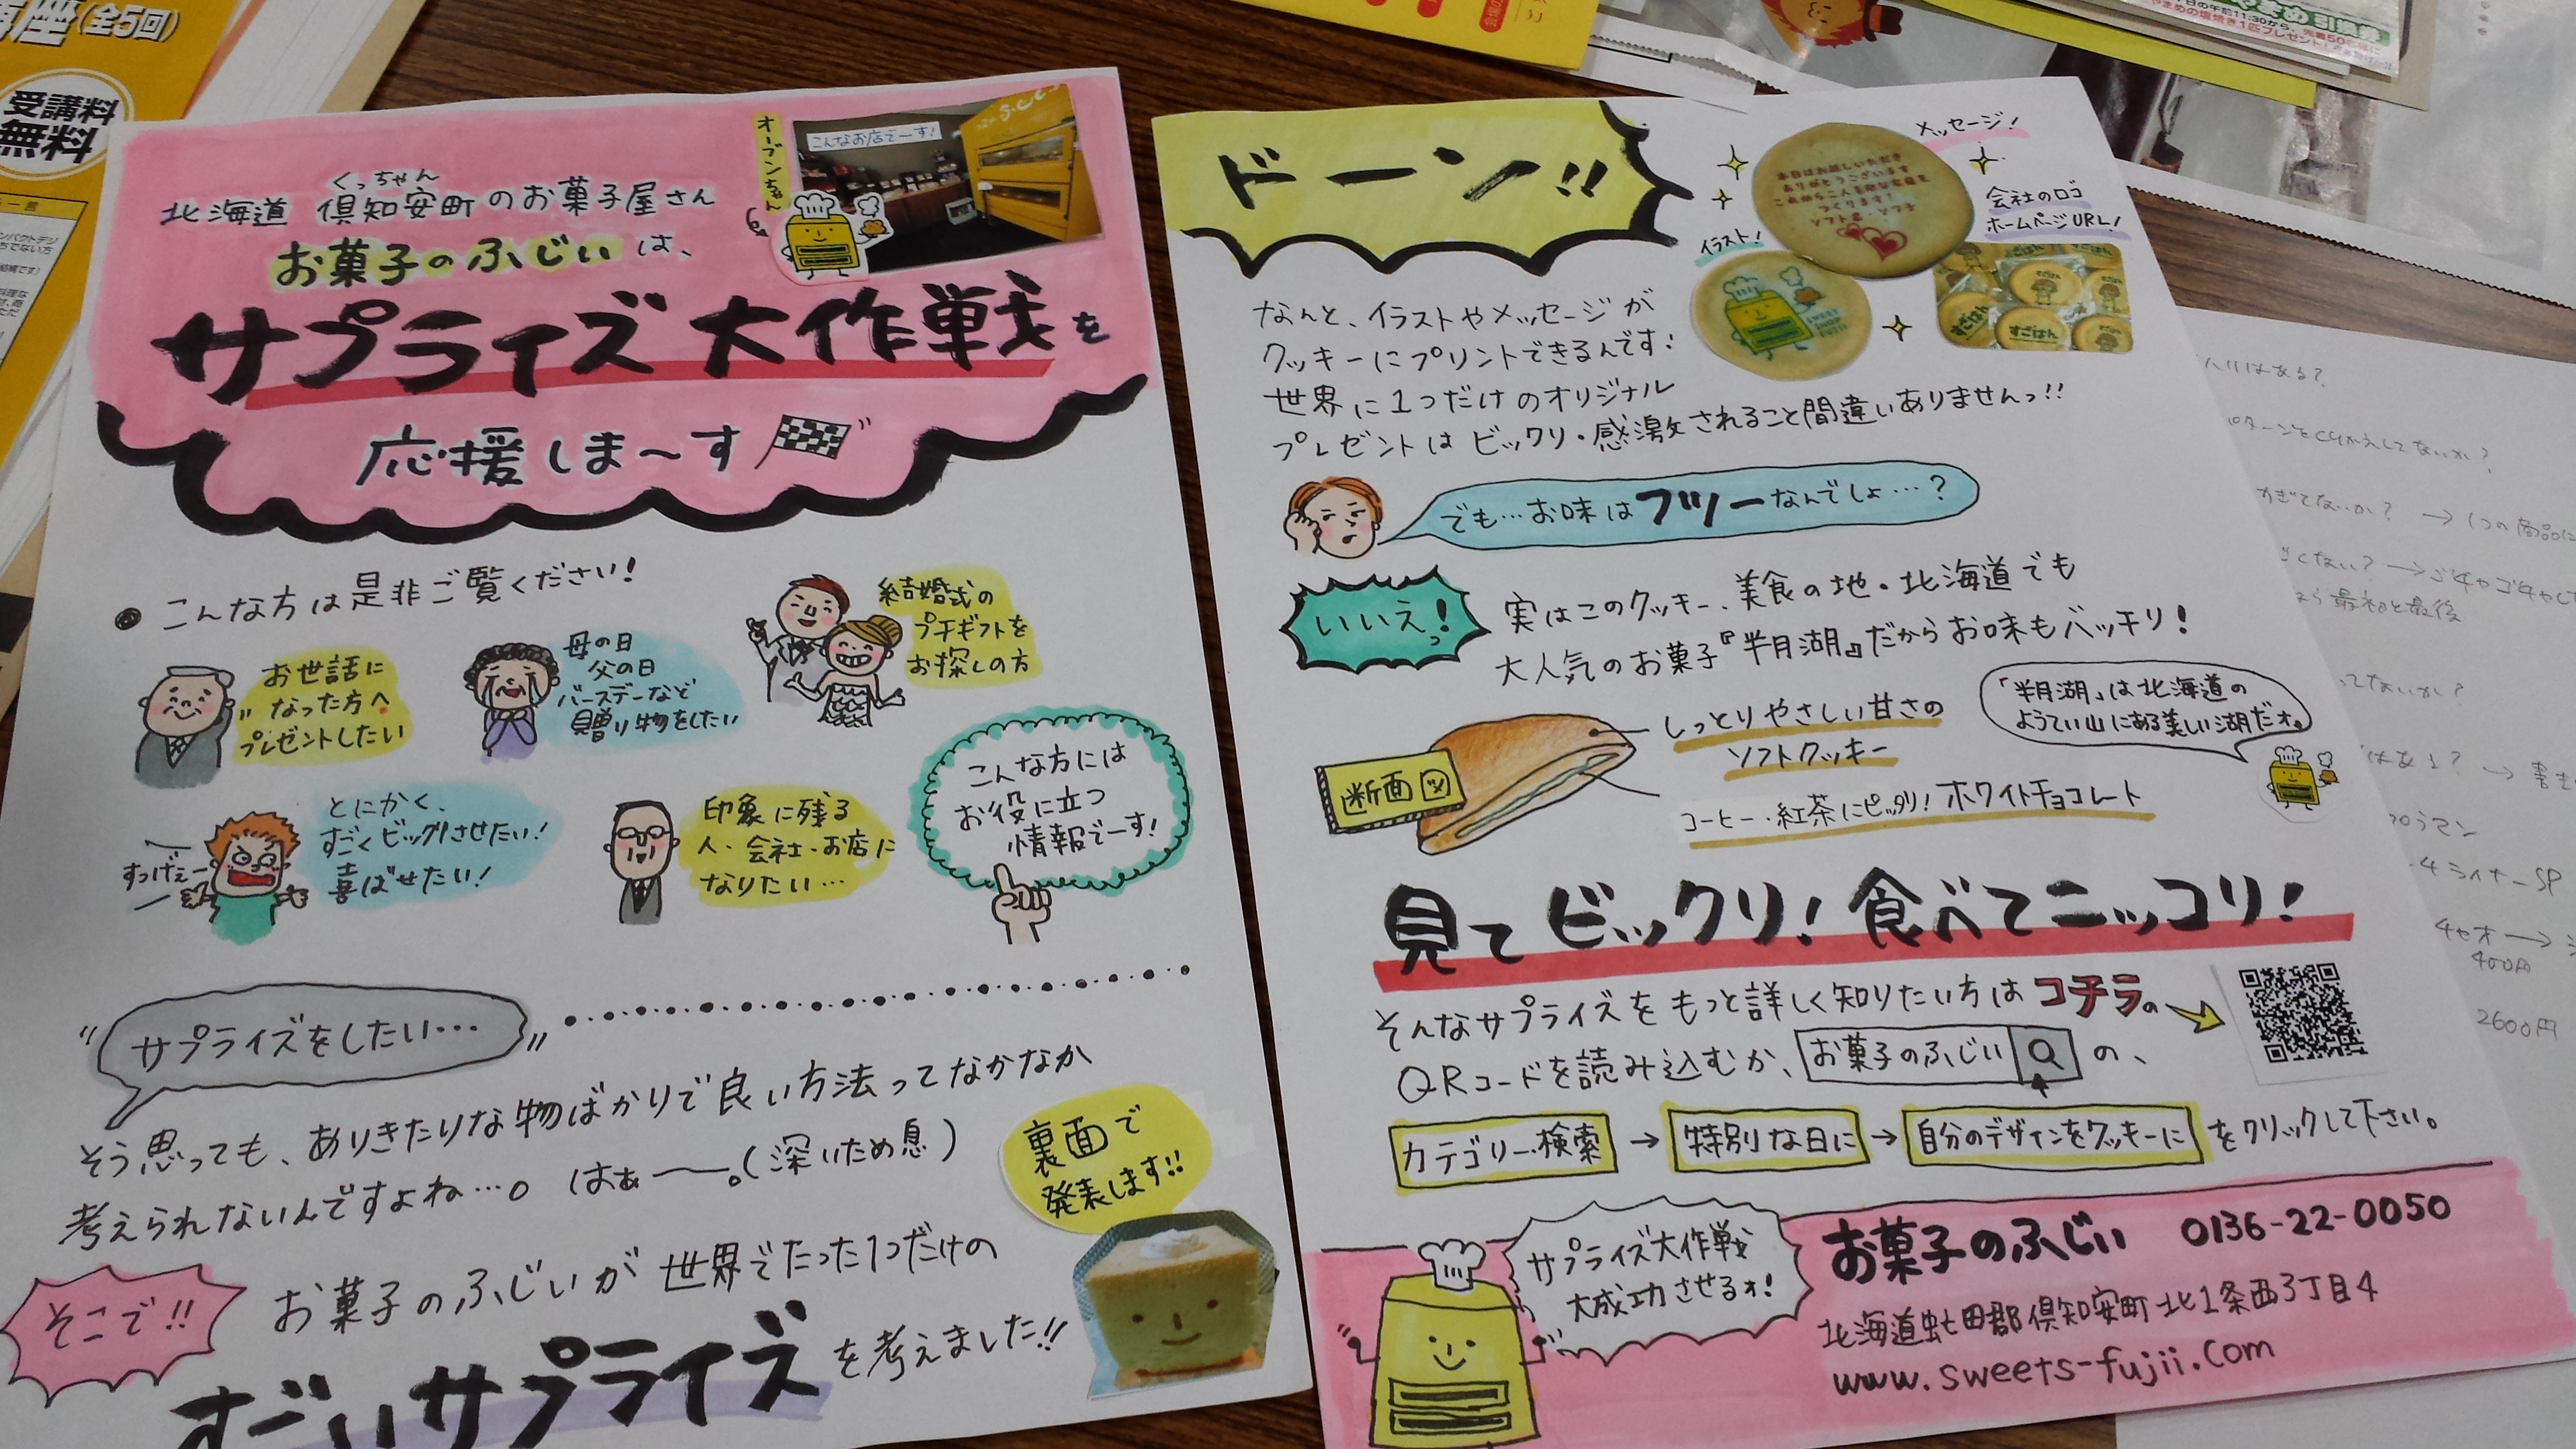 座(全5回)
受講料
無料
オーブンちゃん
こんなお店でーす!
くっちゃん
北海道 倶知安町のお菓子屋さん
お菓子のふじいは、
サプライズ大作戦を
応援しま〜す
こんな方は是非ご覧ください!
お世話に
なった方へ
プレゼントしたい
母の日
父の日
バースデーなど
贈り物をしたい
結婚式の
プチギフトを
お探しの方
すっげぇー
とにかく、
すごくビックリさせたい!
喜ばせたい!
印象に残る
人・会社・お店に
なりたい…
こんな方には
お役に立つ
情報でーす!
サプライズをしたい…
そう思っても、ありきたりな物ばかりで良い方法ってなかなか
考えられないんですよね…。はぁー。(深いため息)
裏面で
発表します!!
そこで!!
お菓子のふじいが世界でたった1つだけの
すごいサプライズを考えました!!
ドーン!!
メッセージ!
本日はお越しいただき
ありがとうございます
イラスト!
会社のロゴ
ホームページURL!
すごはん
なんと、イラストやメッセージが
クッキーにプリントできるんです!
世界に1つだけのオリジナル
プレゼントはビックリ・感激されること間違いありませんっ!!
でも…お味はフツーなんでしょ…?
いいえっ!
実はこのクッキー、美食の地・北海道でも
大人気のお菓子『半月湖』だからお味もバッチリ!
「半月湖」は北海道の
ようてい山にある美しい湖だォ。
断面図
しっとりやさしい甘さの
ソフトクッキー
コーヒー・紅茶にピッタリ!ホワイトチョコレート
見てビックリ!食べてニッコリ!
そんなサプライズをもっと詳しく知りたい方はコチラの
QRコードを読み込むか、お菓子のふじいの、
カテゴリー検索→特別な日に→自分のデザインをクッキーにをクリックして下さい。
サプライズ大作戦
大成功させるォ!
お菓子のふじい 0136-22-0050
北海道虻田郡倶知安町北1条西3丁目4
www.sweets-fujii.com
最初と最後
400円
2600円